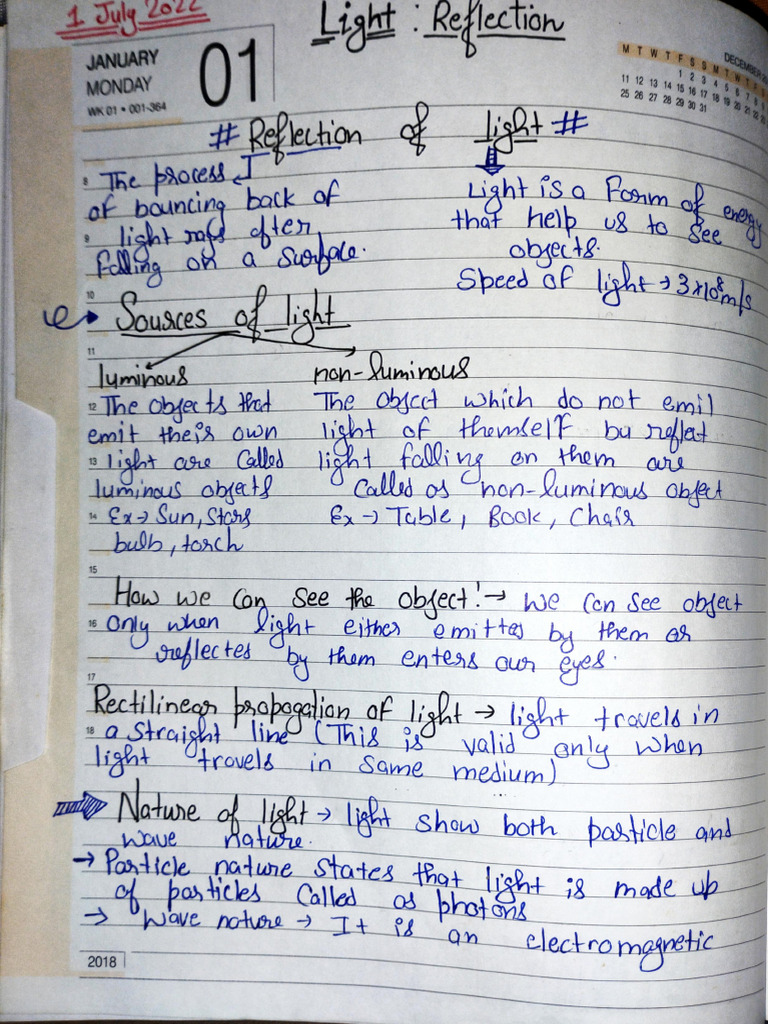 1 July 2022
Light : Reflection
JANUARY
MONDAY
01
WK 01 • 001-364
DECEMBER
M T W T F S S M T W T F S
1 2 3 4 5 6 7 8 9
11 12 13 14 15 16 17 18 19 20 21 22
25 26 27 28 29 30 31
# Reflection of light #
8 The process
of bouncing back of
9 light rays after
falling on a surface.
Light is a Form of energy
that help us to see
objects.
Speed of light → 3×10⁸m/s
10
Sources of light
11
luminous
non-luminous
12 The objects that
emit their own
13 light are called
luminous objects
14 Ex → Sun, Stars
bulb, torch
The object which do not emil
light of themself bu reflect
light falling on them are
Called as non-luminous object
Ex → Table, Book, Chair
15
How we can see the object! → we can see object
16 only when light either emittes by them or
reflectes by them enters our eyes.
17
Rectilinear propogation of light → light travels in
18 a straight line (This is valid only when
light travels in same medium)
Nature of light → light show both particle and
wave nature.
→ Particle nature states that light is made up
of particles called as photons
→ wave nature → It is an electromagnetic
2018